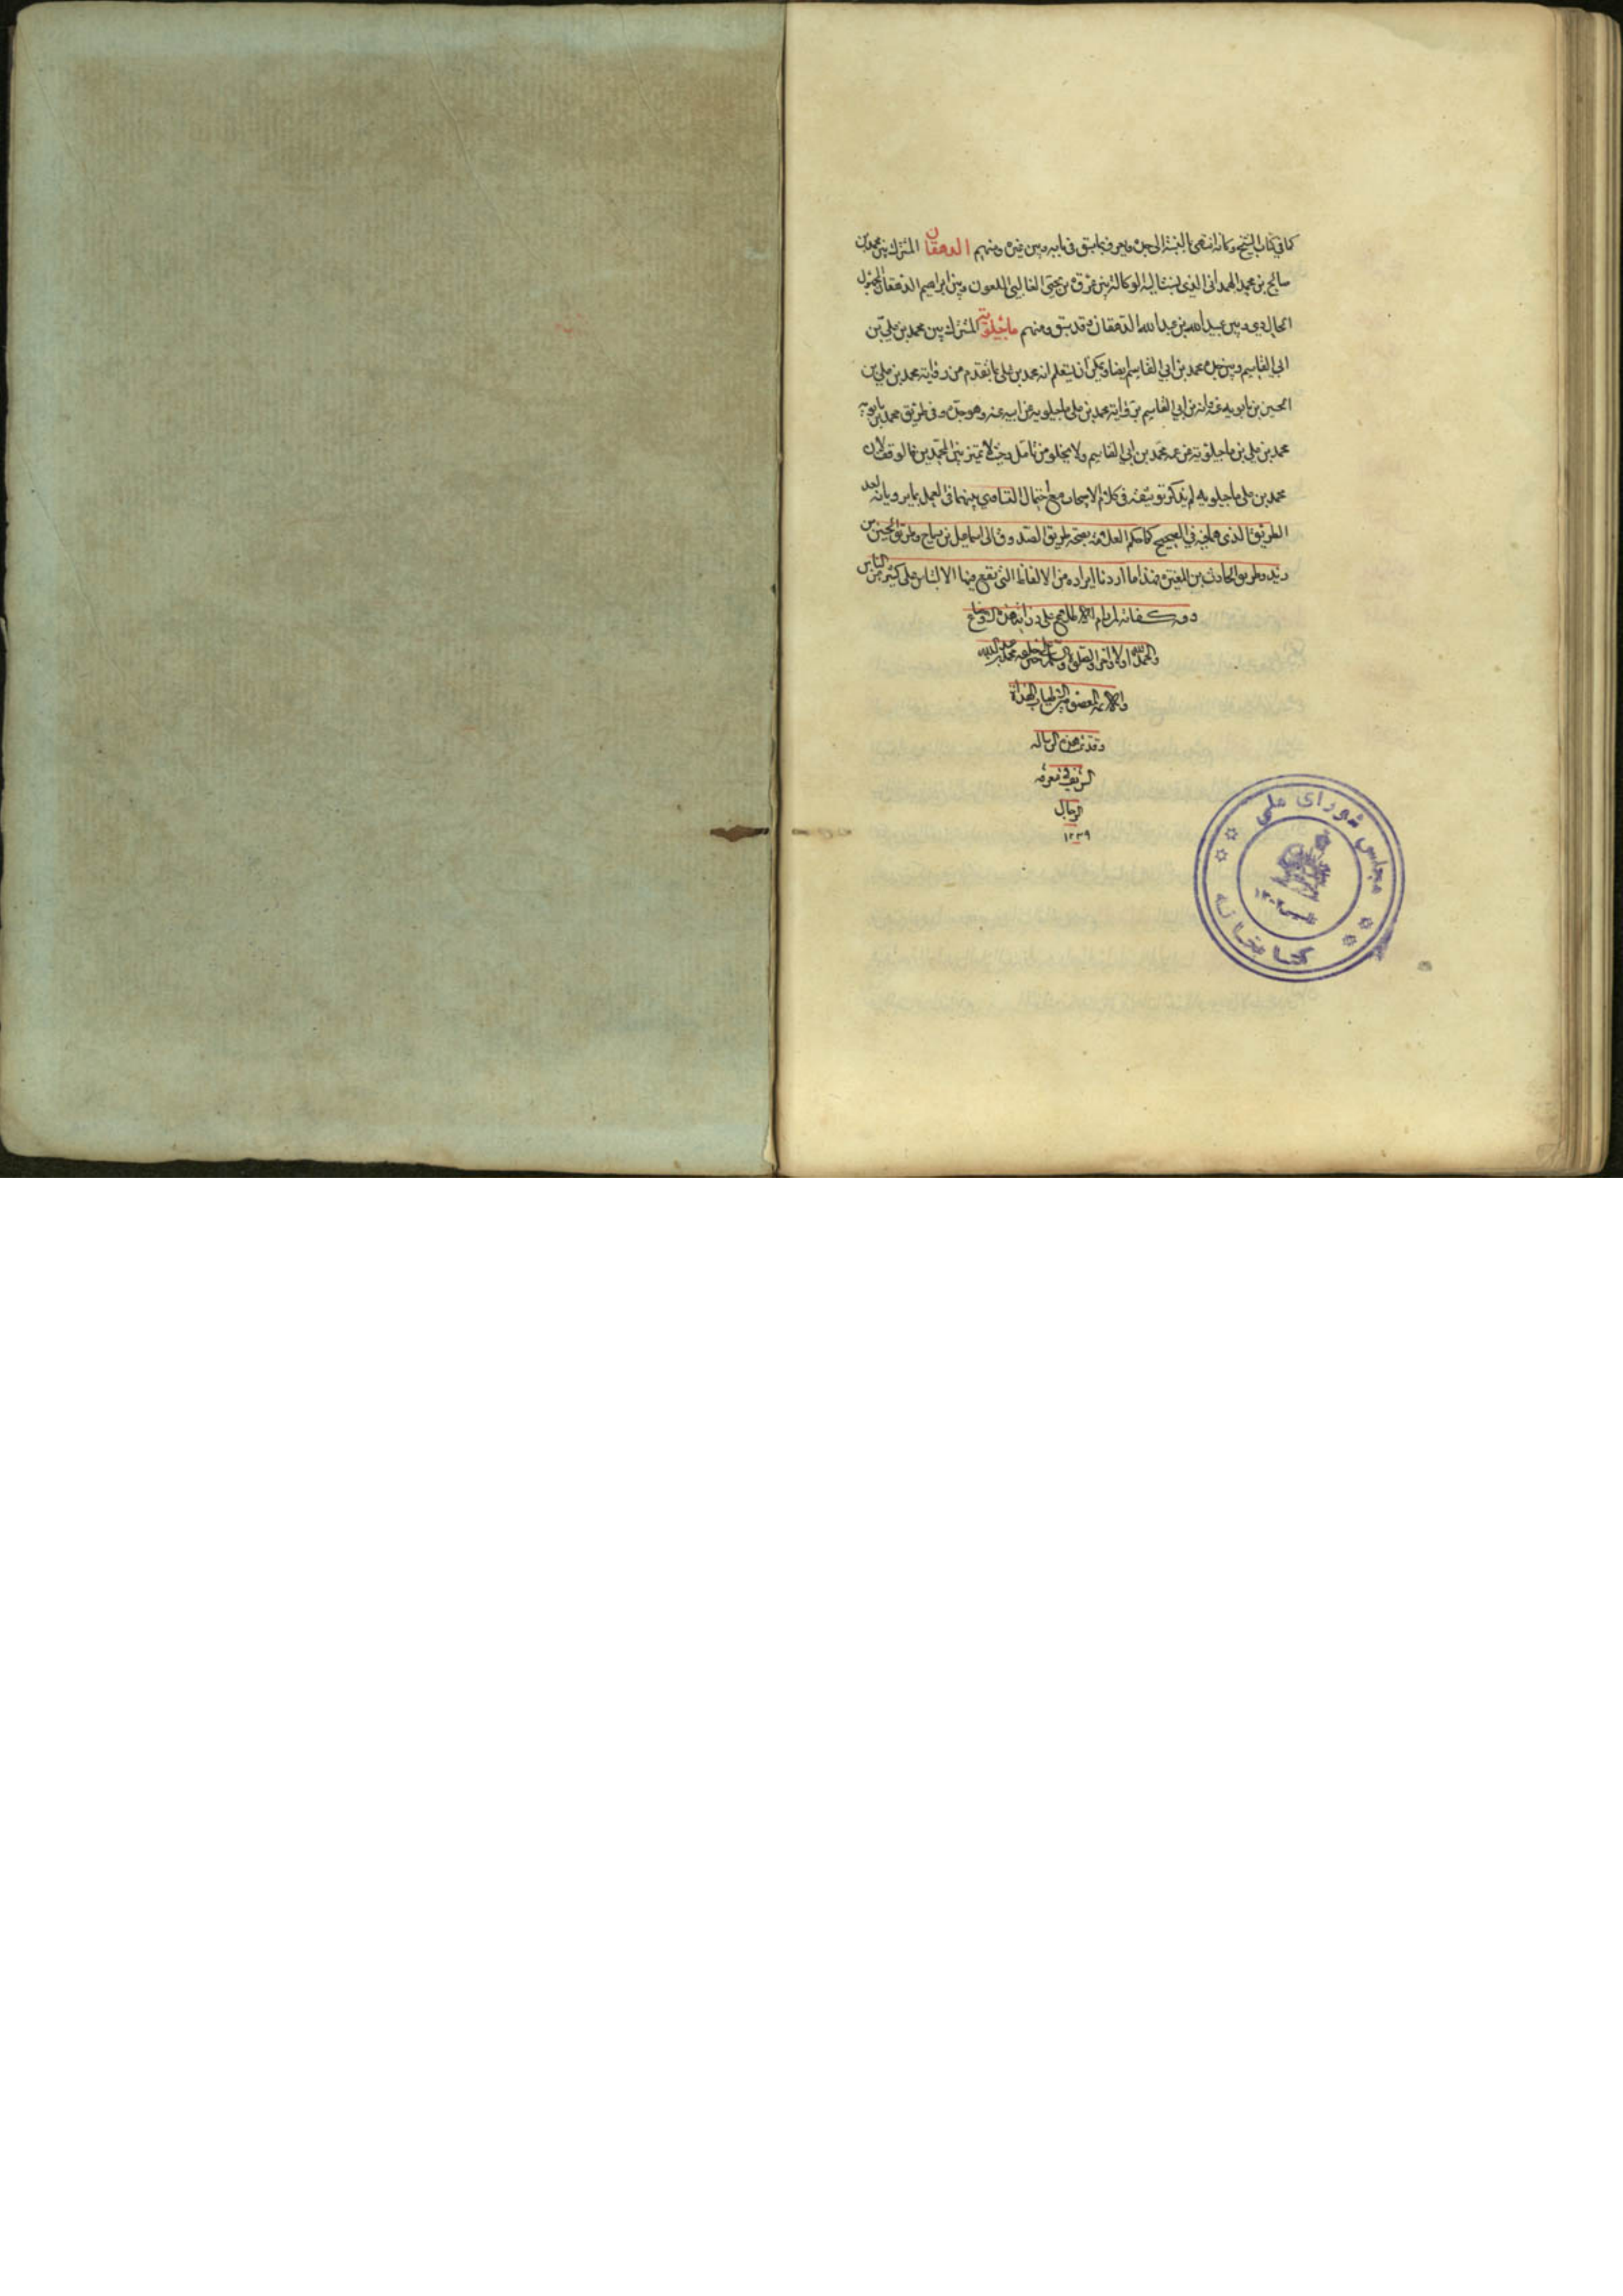 كما في كتاب الشيخ وكأنه انتهى بالنسبة الى جده ويعرف بما سبق في بابه وبين غيره ومنهم الدهقان المشترك بين محمد بن
صالح بن محمد الهمداني الذي الوكالة وبين عروة بن يحيى الملعون وبين ابراهيم الدهقان المجهول
الحال وبين عبيد الله بن عبد الله الدهقان وقد سبق ومنهم ماجيلويه المشترك بين محمد بن علي بن
ابي القاسم وبين جده محمد بن ابي القاسم ايضا ويمكن ان يستعلم انه محمد بن علي بما تقدم من رواية محمد بن علي بن
الحسين بن بابويه عنه وانه بن ابي القاسم برواية محمد بن علي ماجيلويه عن ابيه عنه وهو جده وفي طريق محمد بن بابويه
محمد بن علي بن ماجيلويه عن عمه محمد بن ابي القاسم ولا يخلو من تأمل وحيث لا تميز بين المحمدين فالوقف لان
محمد بن علي ماجيلويه لم يذكر توثيقه في كلام الاصحاب مع احتمال التساوي بينهما في العمل بما يرويانه لعد
الطريق الذي هما فيه في الصحيح كما حكم العلامة بصحة طريق الصدوق الى اسماعيل بن رباح وطريق الحسين بن
زيد وطريق الحارث بن المغيرة فهذا ما اردنا ايراده من الالفاظ التي يقع فيها الالتباس على كثير من الناس
وفيه كفاية لمن رام على
والحمد لله اولا واخرا والصلوة والسلام على خير خلقه محمد
والائمة المعصومين الهداة
وقد تمت هذه الرسالة
الشريفة في معرفة
الرجال
١٢٣٩
مجلس شورای ملی
کتابخانه